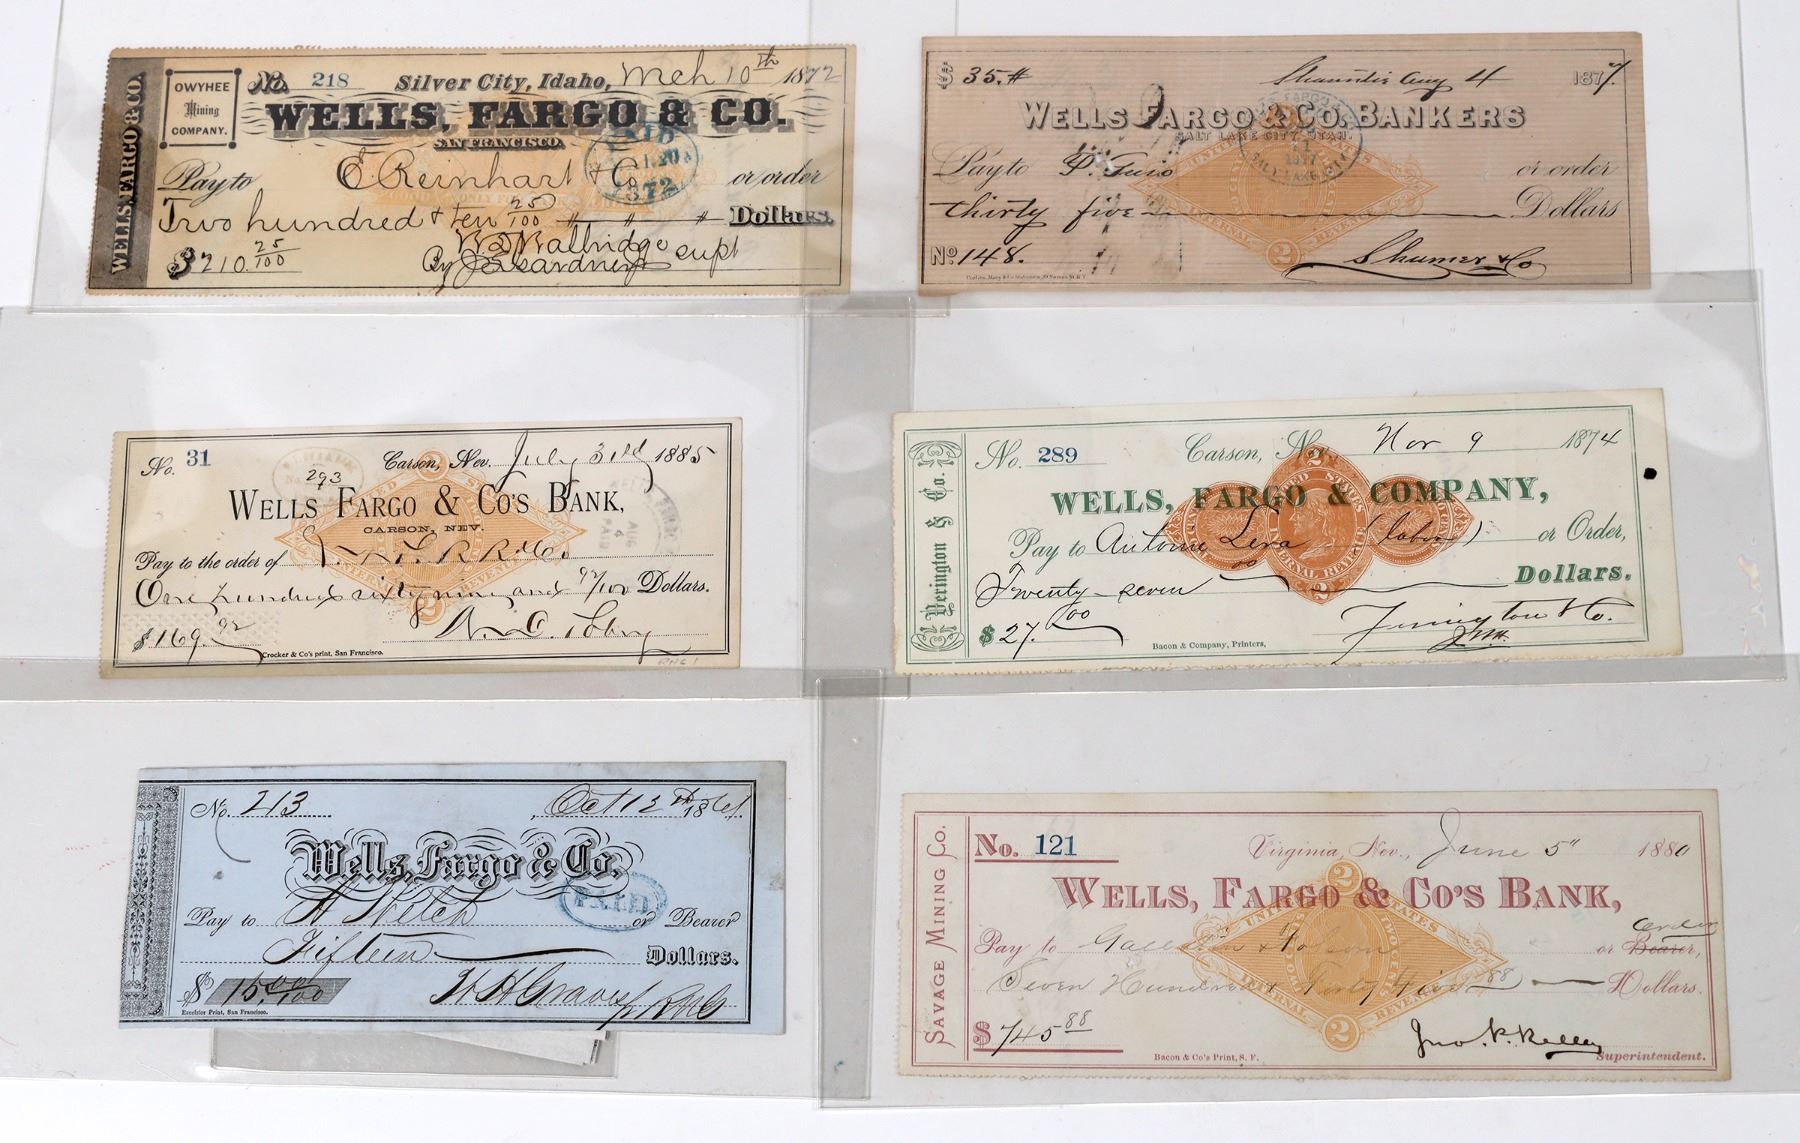 WELLS, FARGO & CO.
OWYHEE
Mining
COMPANY.
No. 218 Silver City, Idaho, Mch 10th 1872
WELLS, FARGO & CO.
SAN FRANCISCO.
PAID
Pay to E. Reinhart & Co or order
Two hundred & ten 25/100 # # # Dollars.
$210.25/100
By supt
$ 35.# Aug 4 1877.
WELLS FARGO & CO. BANKERS
SALT LAKE CITY, UTAH.
Pay to or order
thirty five Dollars
No 148.
UNITED STATES
INTERNAL REVENUE
2
No. 31 Carson, Nev. July 31st 1885
293
WELLS FARGO & CO'S BANK,
CARSON, NEV.
Pay to the order of
One hundred sixty nine and 92/100 Dollars.
$169.92
Crocker & Co's print, San Francisco.
RNG 1
AUG
4
PAID
No. 289 Carson, Nev. Nov 9 1874
WELLS, FARGO & COMPANY,
Pay to Antoine (labor) or Order,
Twenty-seven 00 Dollars.
$ 27.00
Bacon & Company, Printers,
No. 213 Oct 12th 1861.
Wells, Fargo & Co.
Pay to or Bearer
PAID
Fifteen Dollars.
$ 15.00/100
Excelsior Print, San Francisco.
SAVAGE MINING CO.
No. 121 Virginia, Nev., June 5" 1880
WELLS, FARGO & CO'S BANK,
order
Pay to Gallatin & Folsom or Bearer,
Seven Hundred & Forty Five 88 Dollars.
$ 745 88
Jno. P. Kelley
Superintendent.
Bacon & Co's Print, S. F.
UNITED STATES
INTERNAL REVENUE
2